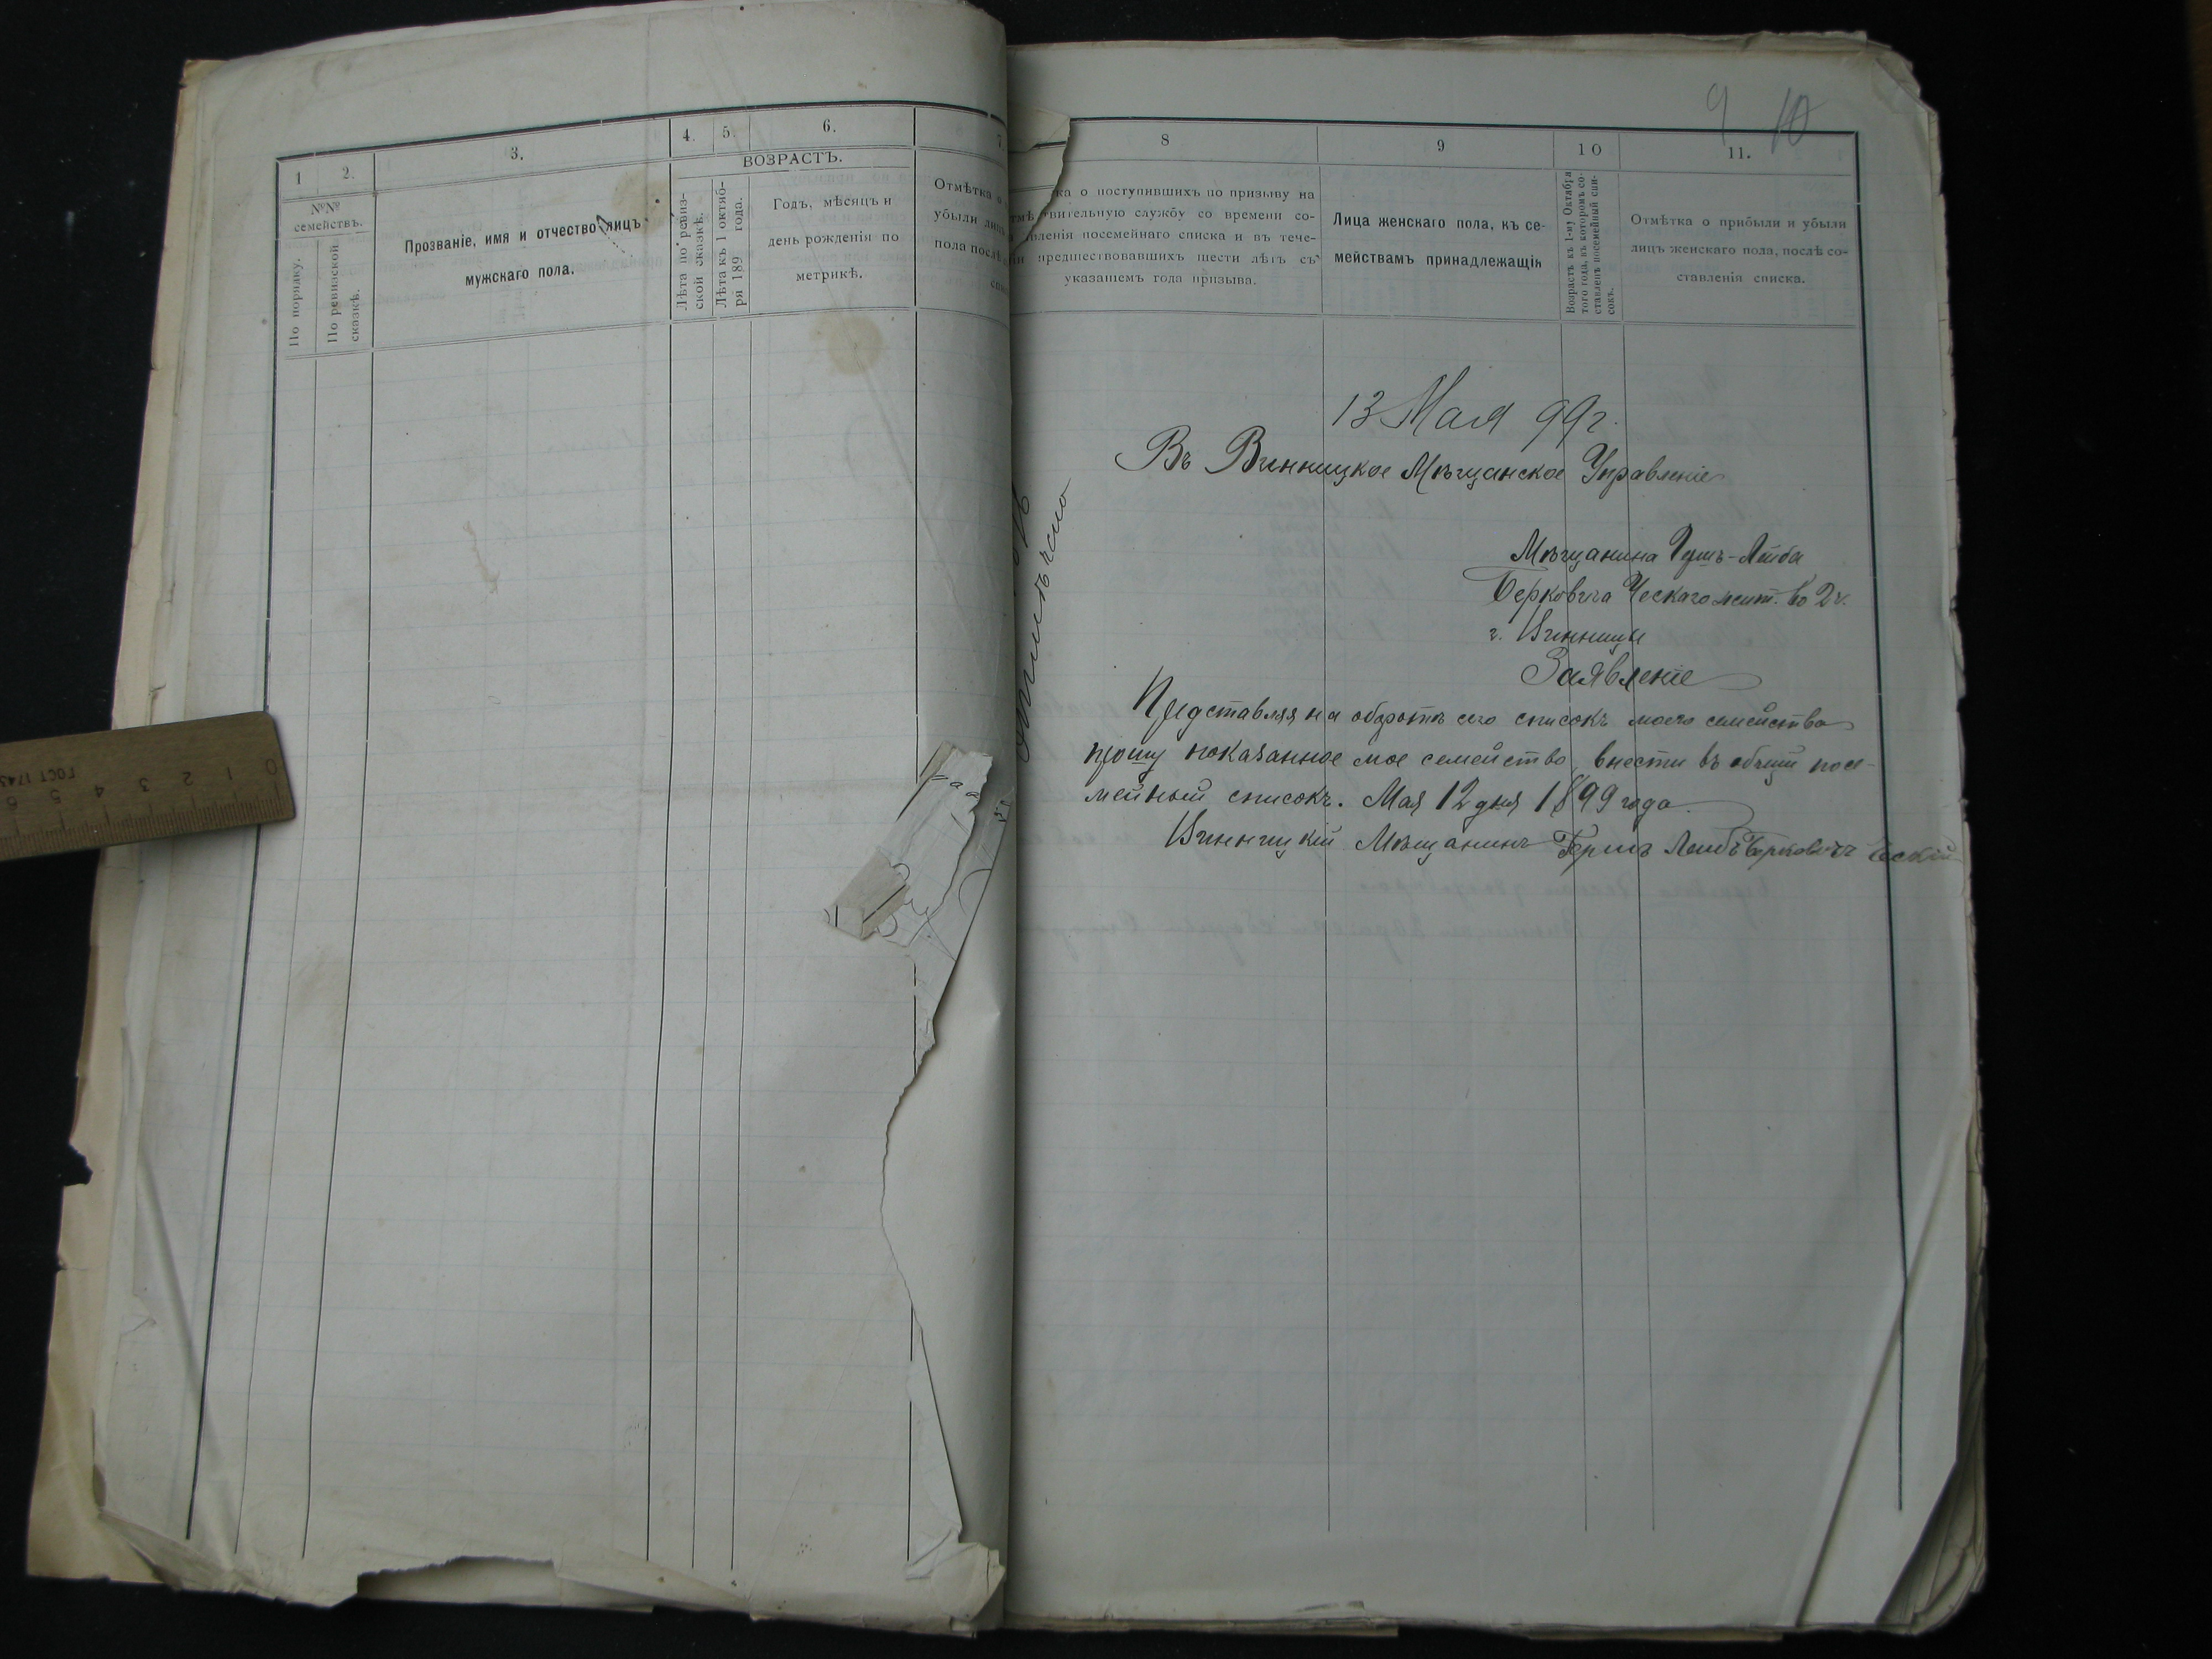 1
2.
3.
4.
5.
6.
7.
№№ семействъ.
По порядку.
По ревизской сказкѣ.
Прозваніе, имя и отчество лицъ
мужскаго пола.
ВОЗРАСТЪ.
Лѣта по ревиз-
ской сказкѣ.
Лѣта къ 1 октяб-
ря 189 года.
Годъ, мѣсяцъ и
день рожденія по
метрикѣ.
Отмѣтка о
убыли лицъ
пола послѣ
0 1 2 3 4 5 6
ГОСТ
9 10
8
9
10
11.
ка о поступившихъ по призыву на
вительную службу со времени со-
вленія посемейнаго списка и въ тече-
ніи предшествовавшихъ шести лѣтъ съ
указаніемъ года призыва.
Лица женскаго пола, къ се-
мействамъ принадлежащія
Возрастъ къ 1-му Октября
того года, въ которомъ со-
ставленъ посемейный спи-
сокъ.
Отмѣтка о прибыли и убыли
лицъ женскаго пола, послѣ со-
ставленія списка.
13 Мая 99 г.
Въ Винницкое Мѣщанское Управленіе
Мѣщанина Гершъ-Лейба
Берковича Ческаго жит. во 2 ч.
г. Винницы
Заявленіе
Представляя на оборотѣ сего списокъ моего семейства
прошу показанное мое семейство, внести въ общій посе-
мейный списокъ. Мая 12 дня 1899 года.
Винницкій Мѣщанинъ Гершъ Лейбъ Берковичъ Ческій